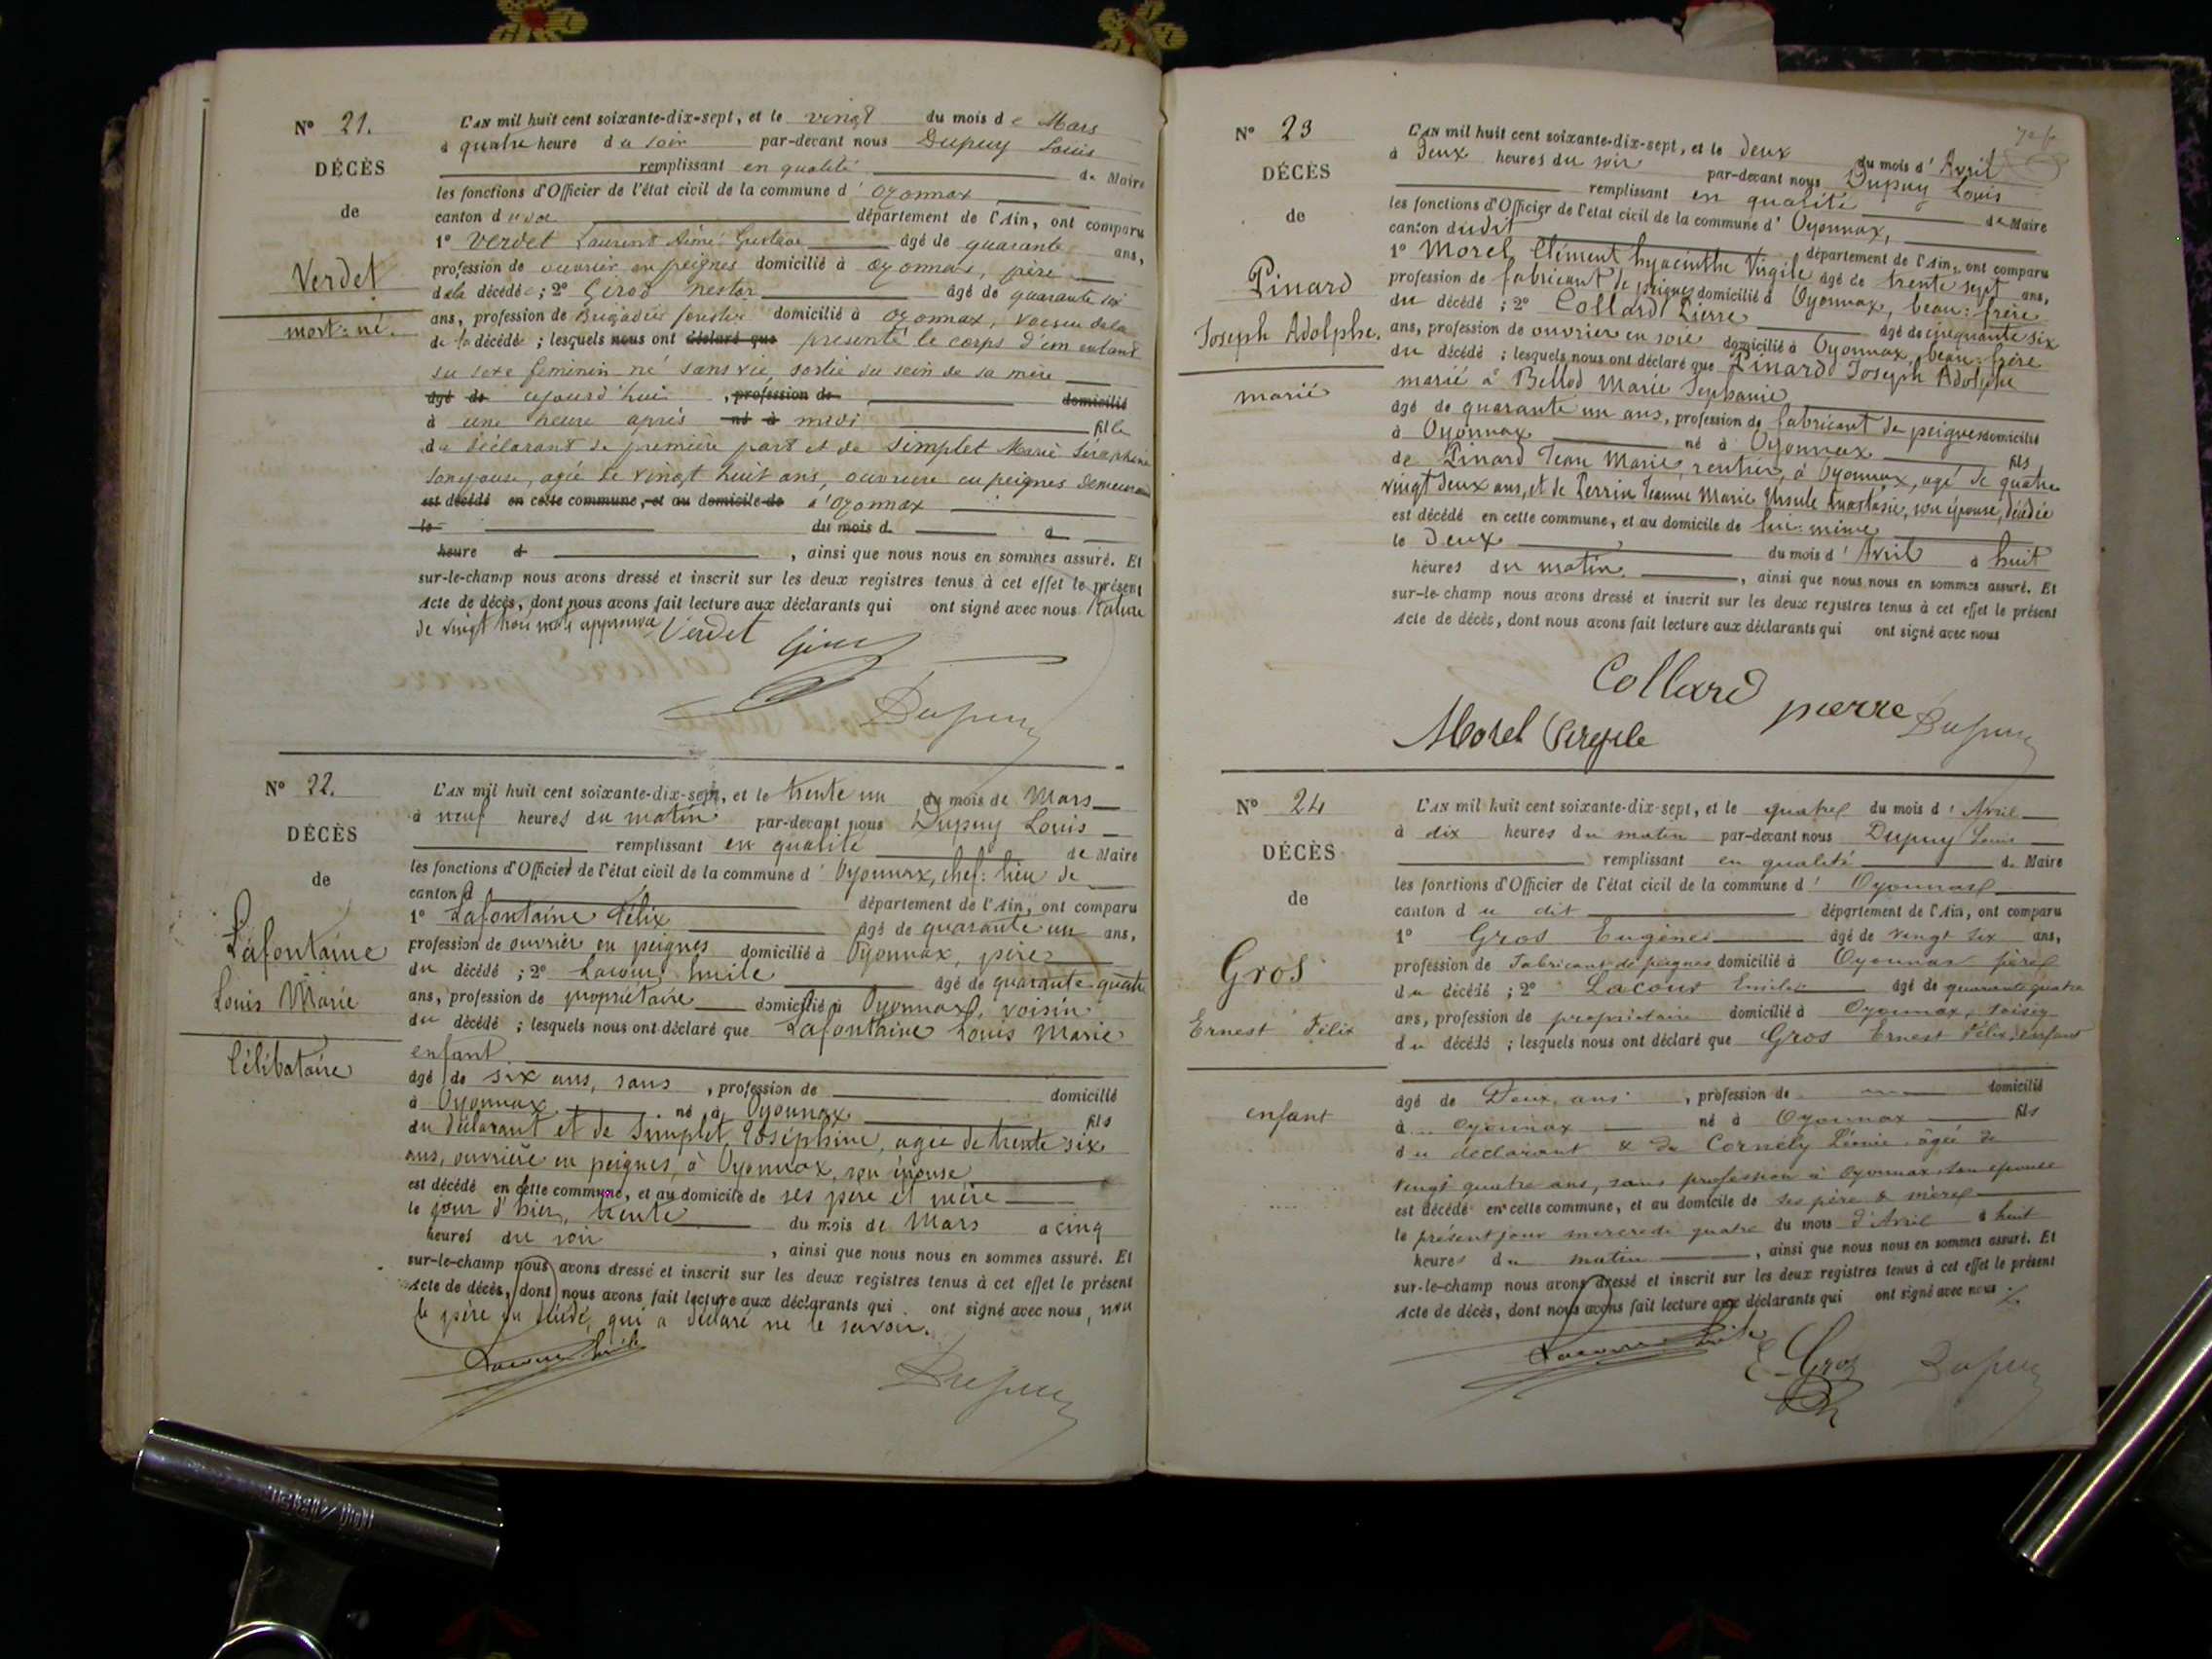 N° 21.
DÉCÈS
de
Verdet
mort-né.
L'AN mil huit cent soixante-dix-sept, et le vingt du mois de Mars
à quatre heure du soir par-devant nous Dupuy Louis
remplissant en qualité de Maire
les fonctions d'Officier de l'état civil de la commune d'Oyonnax
canton d département de l'Ain, ont comparu
1° Verdet Laurent Aimé Gustave âgé de quarante ans,
profession de ouvrier en peignes domicilié à Oyonnax, père
dela décédée; 2° Girod Nestor âgé de quarante six
ans, profession de Brigadier forestier domicilié à Oyonnax, voisin dela
de la décédé ; lesquels nous ont déclaré que presenté le corps d'un enfant
du sexe féminin né sans vie, sortie du sein de sa mère
âgé de aujourd'hui , profession de domicilié
à une heure après né à midi fille
du déclarant de première part et de Simplet Marie Séraphine
son épouse, agée de vingt huit ans, ouvrière en peignes demeurant
est décédé en cette commune, et au domicile de à Oyonnax
le du mois d à
heure d , ainsi que nous nous en sommes assuré. Et
sur-le-champ nous avons dressé et inscrit sur les deux registres tenus à cet effet le présent
Acte de décès, dont nous avons fait lecture aux déclarants qui ont signé avec nous Rature
de vingt trois mots approuvé Verdet Girod
Dupuy
N° 22.
DÉCÈS
de
Lafontaine
Louis Marie
Célibataire
L'AN mil huit cent soixante-dix-sept, et le trente un du mois de Mars
à neuf heures du matin par-devant nous Dupuy Louis
remplissant en qualité de Maire
les fonctions d'Officier de l'état civil de la commune d'Oyonnax, chef-lieu de
canton d département de l'Ain, ont comparu
1° Lafontaine Félix âgé de quarante un ans,
profession de ouvrier en peignes domicilié à Oyonnax, père
du décédé ; 2° Lacour Emile âgé de quarante quatre
ans, profession de propriétaire domicilié à Oyonnax, voisin
du décédé ; lesquels nous ont déclaré que Lafontaine Louis Marie
enfant
âgé de six ans, sans , profession de domicilié
à Oyonnax né à Oyonnax fils
du déclarant et de Simplet Joséphine, agée de trente six
ans, ouvrière en peignes, à Oyonnax, son épouse
est décédé en cette commune, et au domicile de ses père et mère
le jour d'hier, trente du mois de Mars à cinq
heures du soir , ainsi que nous nous en sommes assuré. Et
sur-le-champ nous avons dressé et inscrit sur les deux registres tenus à cet effet le présent
Acte de décès, dont nous avons fait lecture aux déclarants qui ont signé avec nous, non
le père du décédé, qui a déclaré ne le savoir.
Lacour Emile
Dupuy
N° 23
DÉCÈS
de
Pinard
Joseph Adolphe.
marié
L'AN mil huit cent soixante-dix-sept, et le deux du mois d'Avril
à deux heures du soir par-devant nous Dupuy Louis
remplissant en qualité de Maire
les fonctions d'Officier de l'état civil de la commune d'Oyonnax,
canton dudit département de l'Ain, ont comparu
1° Morel Clément hyacinthe Virgile âgé de trente sept ans,
profession de fabricant de peignes domicilié à Oyonnax, beau-frère
du décédé ; 2° Collard Pierre âgé de cinquante six
ans, profession de ouvrier en soie domicilié à Oyonnax, beau-frère
du décédé ; lesquels nous ont déclaré que Pinard Joseph Adolphe
marié à Bellod Marie Stephanie
âgé de quarante un ans, profession de fabricant de peignes domicilié
à Oyonnax né à Oyonnax fils
de Pinard Jean Marie, rentier, à Oyonnax, agé de quatre
vingt deux ans, et de Perrin Jeanne Marie Ursule Anastasie, son épouse, décédée
est décédé en cette commune, et au domicile de lui-même
le deux du mois d'Avril à huit
heures du matin , ainsi que nous nous en sommes assuré. Et
sur-le-champ nous avons dressé et inscrit sur les deux registres tenus à cet effet le présent
Acte de décès, dont nous avons fait lecture aux déclarants qui ont signé avec nous
Collard pierre
Morel Virgile Dupuy
N° 24
DÉCÈS
de
Gros
Ernest Félix
enfant
L'AN mil huit cent soixante-dix-sept, et le quatre du mois d'Avril
à dix heures du matin par-devant nous Dupuy Louis
remplissant en qualité de Maire
les fonctions d'Officier de l'état civil de la commune d'Oyonnax
canton du dit département de l'Ain, ont comparu
1° Gros Eugène âgé de vingt six ans,
profession de fabricant de peignes domicilié à Oyonnax père
du décédé ; 2° Lacour Emile âgé de quarante quatre
ans, profession de propriétaire domicilié à Oyonnax, voisin
du décédé ; lesquels nous ont déclaré que Gros Ernest Félix, enfant
âgé de Deux ans , profession de domicilié
à Oyonnax né à Oyonnax fils
du déclarant & de Cornély Léonie âgée de
vingt quatre ans, sans profession à Oyonnax son épouse
est décédé en cette commune, et au domicile de ses père & mère
le présent jour mercredi quatre du mois d'Avril à huit
heures du matin , ainsi que nous nous en sommes assuré. Et
sur-le-champ nous avons dressé et inscrit sur les deux registres tenus à cet effet le présent
Acte de décès, dont nous avons fait lecture aux déclarants qui ont signé avec nous
Lacour Emile E Gros Dupuy